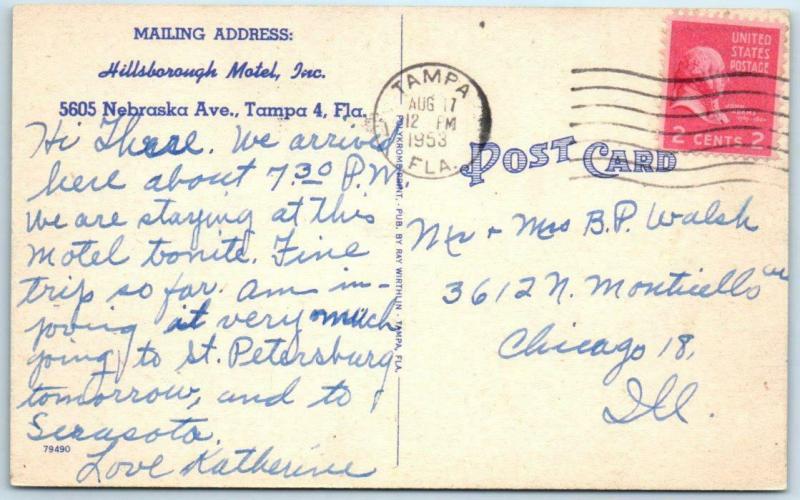 MAILING ADDRESS:
Hillsborough Motel, Inc.
5605 Nebraska Ave., Tampa 4, Fla.
Hi There. We arrived
here about 7.30 P.M.
We are staying at this
Motel tonite. Fine
trip so far. am in-
joying it very much
going to St. Petersburg
tomorrow, and to
Serasota.
Love Katherine
79490
PUB. BY RAY WIRTHLIN - TAMPA, FLA.
TAMPA
AUG 17
12 PM
1953
FLA.
UNITED
STATES
POSTAGE
JOHN
ADAMS
2 CENTS 2
POST CARD
Mr + Mrs B.P. Walsh
3612 N. Monticello ave
Chicago 18,
Ill.